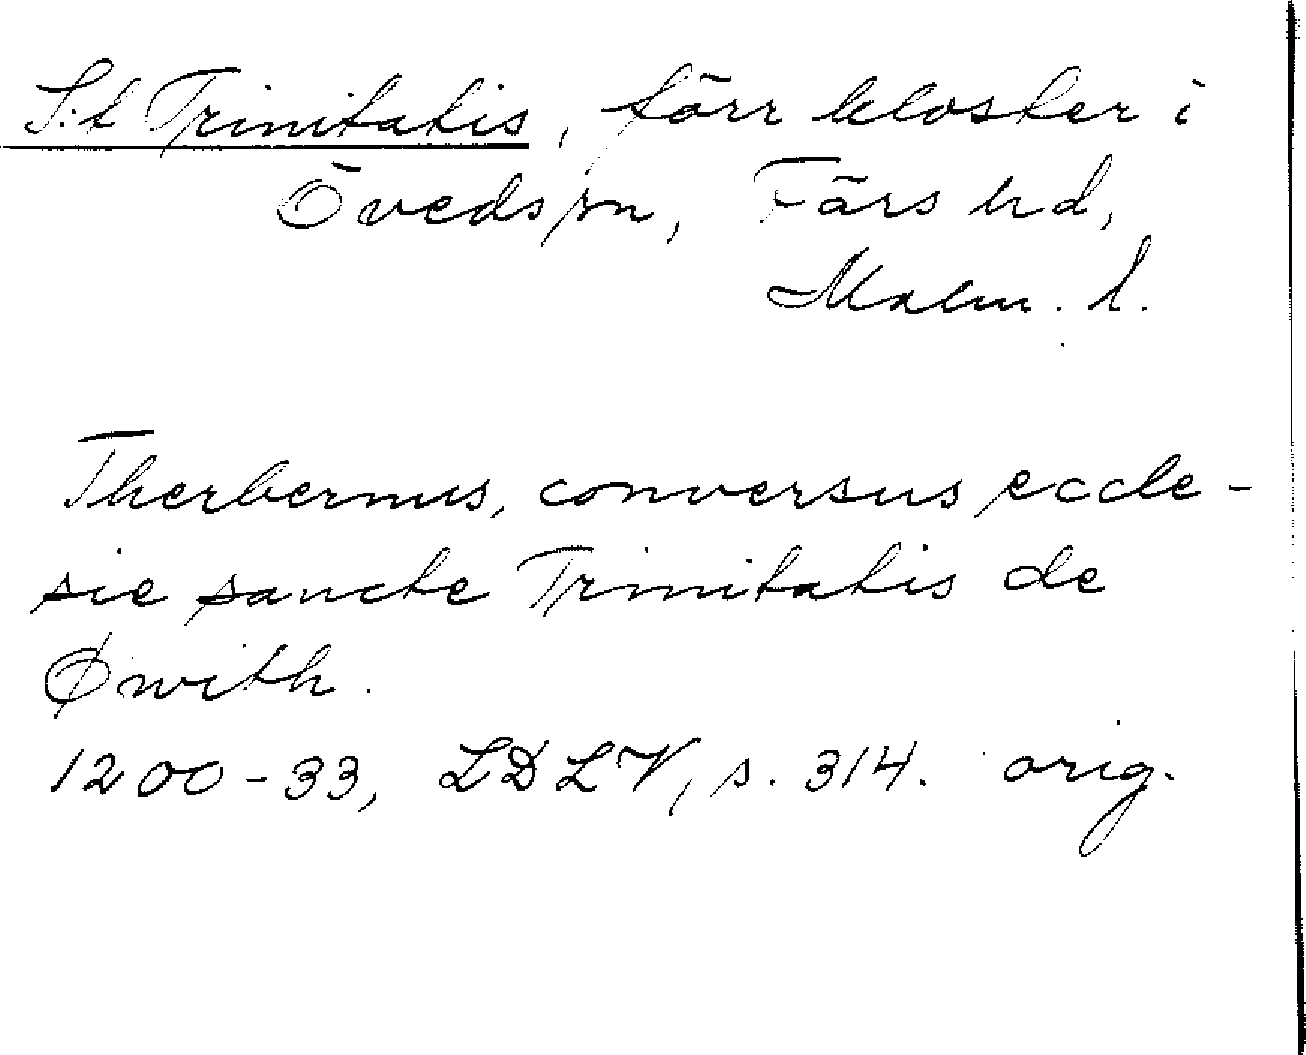 S:t Trinitatis, förr kloster i
Övedssn, Färs hd,
Malm. l.
Therbernus, conversus eccle-
sie sancte Trinitatis de
Øwith.
1200-33, LDLV, s. 314. orig.